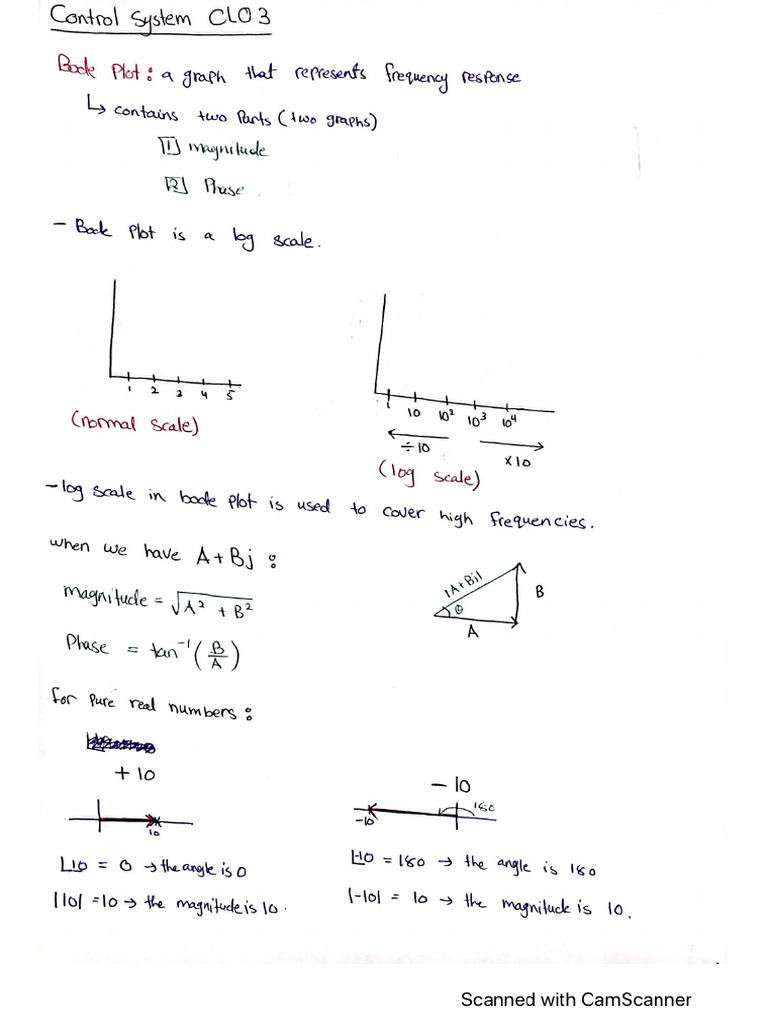 Control System CLO3
Bode Plot: a graph that represents frequency response
↳ contains two parts (two graphs)
1 magnitude
2 Phase
- Bode Plot is a log scale.
1 2 3 4 5
(normal scale)
1 10 10² 10³ 10⁴
÷10
×10
(log scale)
- log scale in bode plot is used to cover high frequencies.
when we have A+Bj :
magnitude = √A² + B²
Phase = tan⁻¹(B/A)
|A+Bj|
B
θ
A
for pure real numbers:
+ 10
10
∠10 = 0 → the angle is 0
|10| = 10 → the magnitude is 10.
- 10
180
-10
∠-10 = 180 → the angle is 180
|-10| = 10 → the magnitude is 10.
Scanned with CamScanner